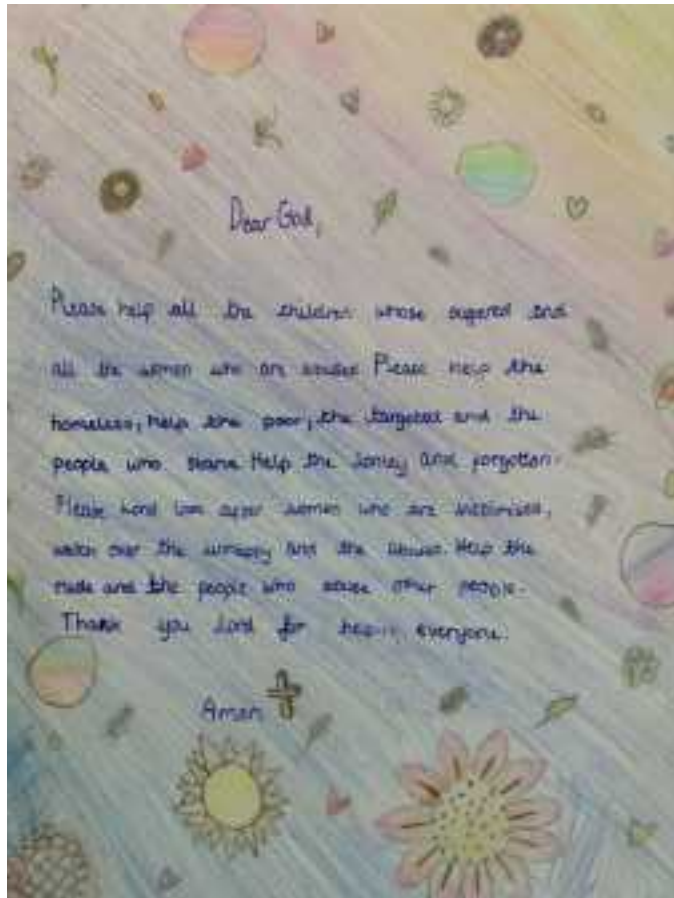 Dear God,
Please help all the children whose and
all the women who are abused Please help the
homeless, help the poor, the targeted and the
people who starve Help the lonley and forgotten.
Please Lord look after women who are victimised,
watch over the unhappy and the Help the
rude and the people who abuse other people.
Thank you Lord for helping everyone.
Amen